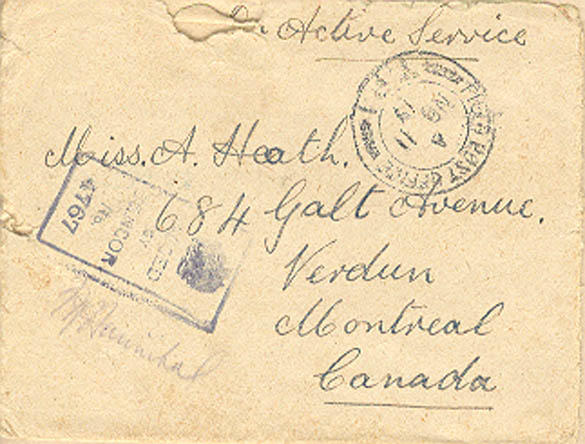 On Active Service
FIELD POST OFFICE
4
11
Miss. A. Heath.
684 Galt Avenue.
Verdun
Montreal
Canada
CENSOR
No. 4767